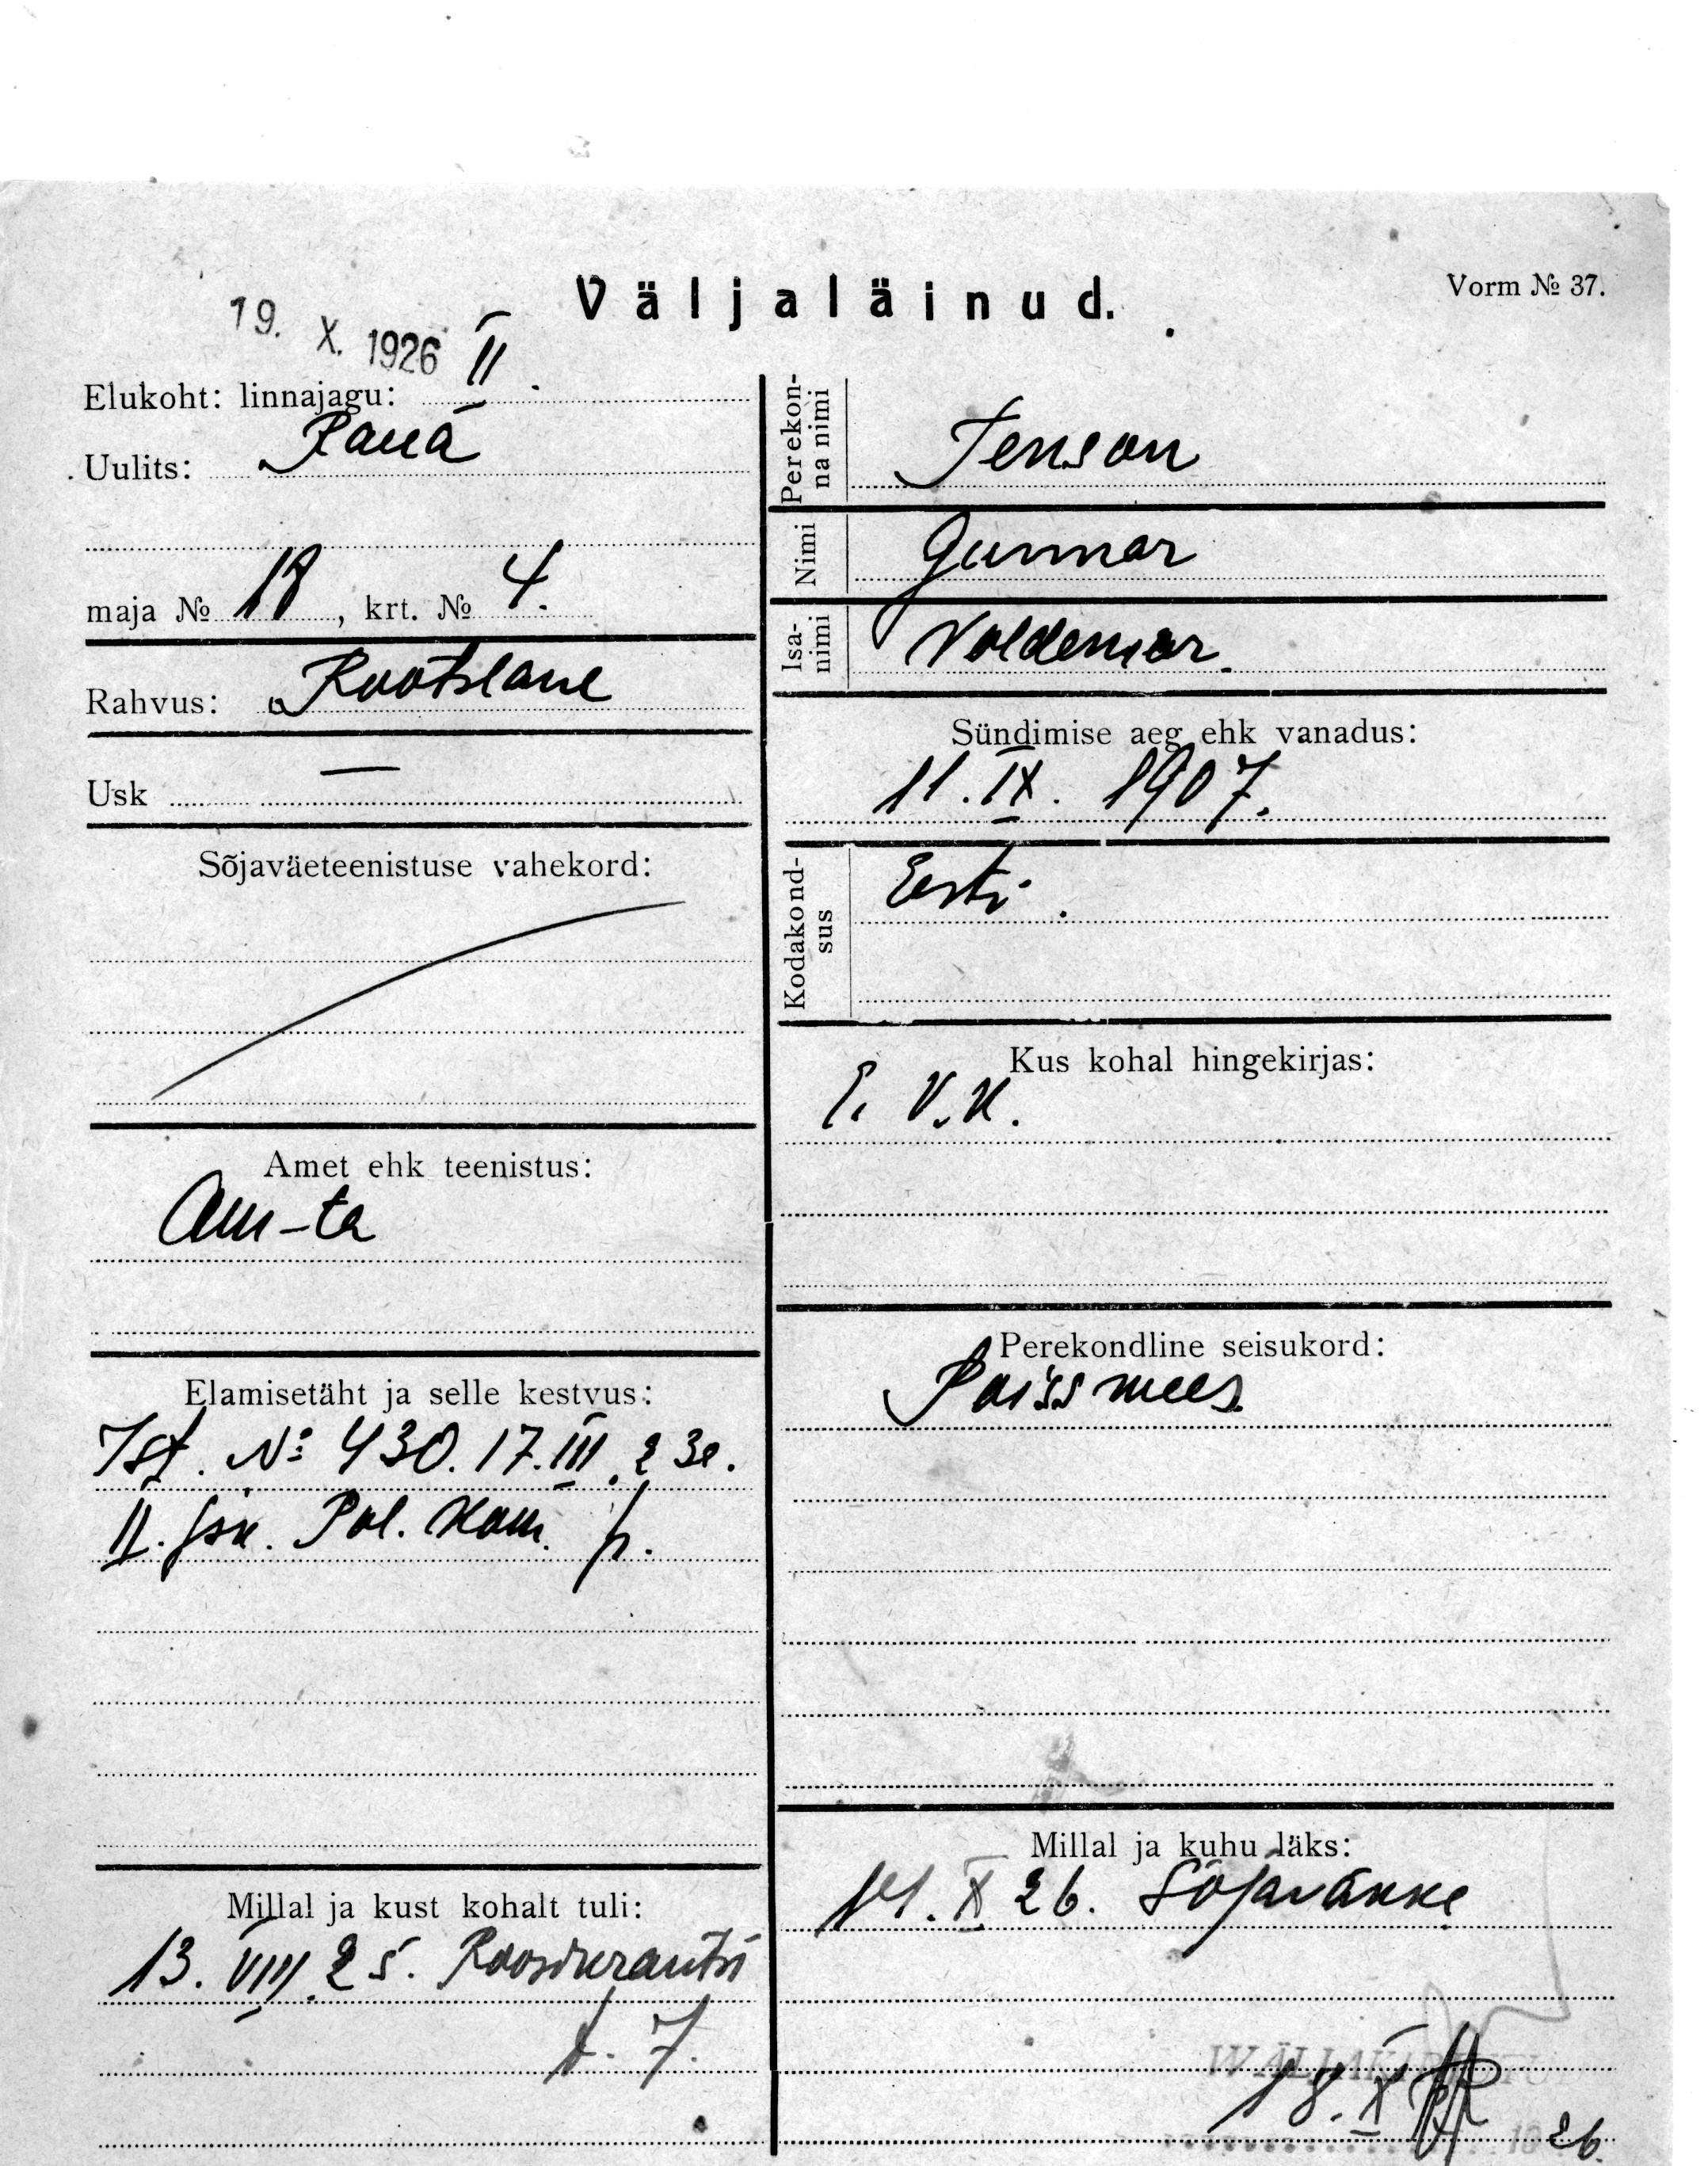 Väljaläinud.
Vorm № 37.
19. X. 1926
Elukoht: linnajagu: II.
Uulits: Raua
maja № 18, krt. № 4.
Rahvus: Rootslane
Usk —
Sõjaväeteenistuse vahekord:
Amet ehk teenistus:
Am-ta
Elamisetäht ja selle kestvus:
Ist. № 430. 17.III.23e.
II. jsk. Pol. Kom. p.
Millal ja kust kohalt tuli:
13. VIII. 25. Roosikrantsi
t. 7.
Perekon-
na nimi
Jenson
Nimi
Gunnar
Isa-
nimi
Voldemar.
Sündimise aeg ehk vanadus:
11. IX. 1907.
Kodakond-
sus
Eesti.
Kus kohal hingekirjas:
E. V. K.
Perekondline seisukord:
Poissmees
Millal ja kuhu läks:
14. X 26. Sõjaväkke
18. X
1926.